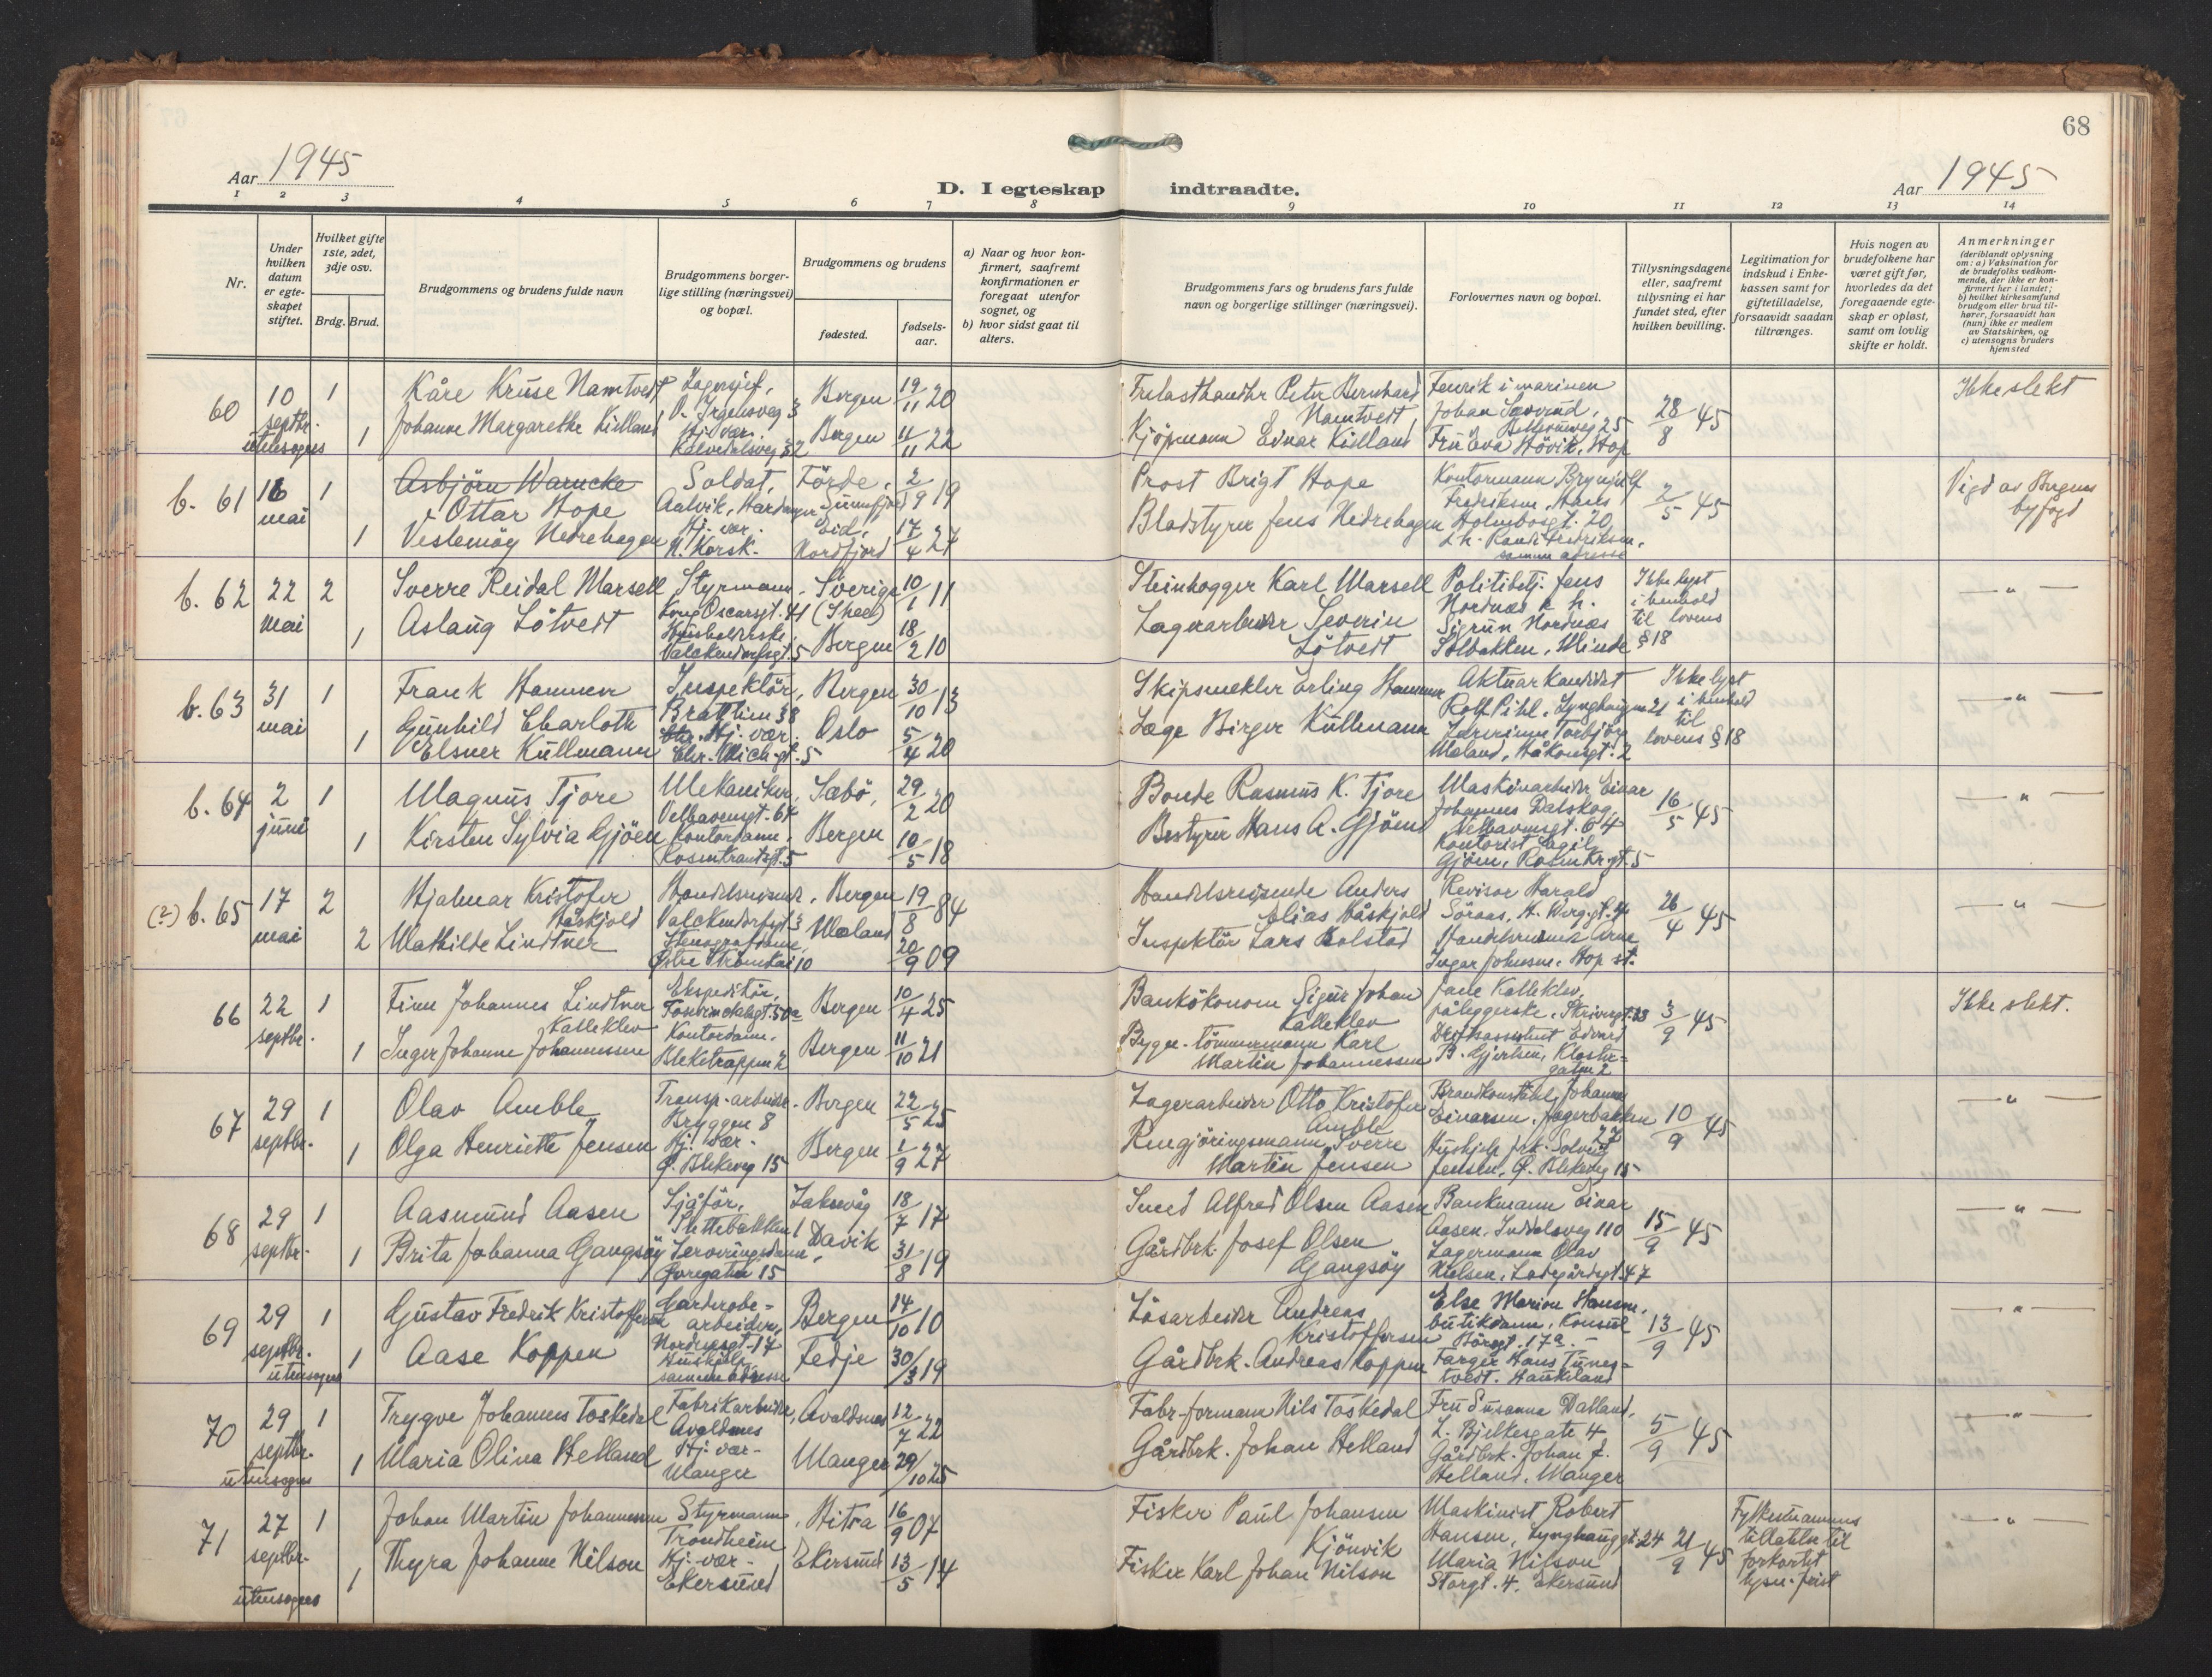 68
Aar 1945
D. I egteskap indtraadte.
Aar 1945
1 2 3 4 5 6 7 8 9 10 11 12 13 14
Nr.
Under hvilken datum er egteskapet stiftet.
Hvilket gifte 1ste, 2det, 3dje osv.
Brdg. Brud.
Brudgommens og brudens fulde navn
Brudgommens borgerlige stilling (næringsvei) og bopæl.
Brudgommens og brudens
fødested.
fødselsaar.
a) Naar og hvor konfirmert, saafremt konfirmationen er foregaat utenfor sognet, og
b) hvor sidst gaat til alters.
Brudgommens fars og brudens fars fulde navn og borgerlige stillinger (næringsvei).
Forlovernes navn og bopæl.
Tillysningsdagene eller, saafremt tillysning ei har fundet sted, efter hvilken bevilling.
Legitimation for indskud i Enkekassen samt for giftetilladelse, forsaavidt saadan tiltrænges.
Hvis nogen av brudefolkene har været gift før, hvorledes da det foregaaende egteskap er opløst, samt om lovlig skifte er holdt.
Anmerkninger (deriblandt oplysning om: a) Vaksination for de brudefolks vedkommende, der ikke er konfirmert her i landet; b) hvilket kirkesamfund brudgom eller brud tilhører, forsaavidt han (hun) ikke er medlem av Statskirken, og c) utensogns bruders hjemsted
60 10 septbr. utensogns 1 1
Kåre Kruse Namtvedt
Johanne Margarethe Kielland
Lagersjef, O. Irgensveg 3
Hj. vær. Kalvedalsveg 32
Bergen 19/11 20
Bergen 11/11 22
Trelasthandler Peter Bernhard Namtvedt
Kjöpmann Einar Kielland
Fenrik i marinen Johan Sæverud,
Fru Eva Hövik, Hop
28/8 45
Ikke slekt
b. 61 16 mai 1 1
Asbjörn Warncke
Ottar Hope
Veslemöy Nedrehagen
Soldat, Aalvik, Hardanger
Hj. vær. N. Korsk.
Förde, Sunnfjord 2/9 19
Eid, Nordfjord 17/4 27
Prost Brigt Hope
Bladstyrer Jens Nedrehagen
Kontormann Brynjulf Fredriksen, Hans Holmboesgt. 20,
k. h. Randi Fredriksen, samme adresse
2/5 45
Vigd av Bergens byfogd
b. 62 22 mai 2 1
Sverre Reidal Marsell
Aslaug Lötvedt
Styrmann, Kong Oscarsgt. 41
Husholderske, Valckendorfsgt. 5
Sverige (Skee) 10/1 11
Bergen 18/2 10
Steinhogger Karl Marsell
Lagerarbeider Severin Lötvedt
Politibetj. Jens Nordnæs k. h.
Sigrun Nordnæs Solbakken, Minde
Ikke lyst i henhold til lovens § 18
— " —
b. 63 31 mai 1 1
Frank Hammer
Gunhild Charlotte Elsner Kullmann
Inspektör, Brattlien 38
Hj. vær. Chr. Mich. gt. 5
Bergen 30/10 13
Oslo 5/4 20
Skipsmekler Erling Hammer
Læge Birger Kullmann
Aktuarkandidat Rolf Pihl, Lynghaugen 21
Lærerinne Torbjörg Mæland, Håkonsgt. 2
Ikke lyst i henhold til lovens § 18
— " —
b. 64 2 juni 1 1
Magnus Tjore
Kirsten Sylvia Gjöen
Mekaniker, Welhavensgt. 64
Kontordame, Rosenkrantzgt. 5
Sæbö, 29/2 20
Bergen 10/5 18
Bonde Rasmus K. Tjore
Bestyrer Hans A. Gjöen
Maskinarbeider Einar Johannes Dalskog, Welhavensgt. 64
Kontorist Egil Gjöen, Rosenkr.gt. 5
16/5 45
— " —
(?) b. 65 17 mai 2 2
Hjalmar Kristofer Håskjold
Mathilde Lindtner
Handelsreisende, Valckendorfsgt. 3
Stenografdame, Østre Strömkai 10
Bergen 19/8 84
Mæland 20/9 09
Handelsreisende Anders Elias Håskjold
Inspektör Lars Bolstad
Revisor Harald Söraas, H. Werg.gt. 4
Handelsreisende Arne Inger Johnsen, Hop st.
26/4 45
— " —
66 22 septbr. 1 1
Finn Johannes Lindtner Kalleklev
Inger Johanne Johannessen
Ekspeditör, Fosswinckelsgt. 50a
Kontordame, Bleketrappen 2
Bergen 10/4 25
Bergen 11/10 21
Bankökonom Sigur Johan Kalleklev
Bygn.-tömmermann Karl Martin Johannessen
Jane Kalleklev, påleggerske, Skivergt. 33
Driftsassistent Edvard B. Gjertsen, Klostergaten 2
3/9 45
Ikke slekt.
67 29 septbr. 1 1
Olav Amble
Olga Henriette Jensen
Transp.-arbeider, Bryggen 8
Hj. vær. Ø. Blekeveg 15
Bergen 22/5 25
Bergen 1/9 27
Lagerarbeider Otto Kristofer Amble
Rengjöringsmann Sverre Martin Jensen
Brandkonstabel Johannes Einarsen, Jegerbakken 27
Hushjelp frk. Solveig Jensen, Ø. Blekeveg 15
10/9 45
— " —
68 29 septbr. 1 1
Aasmund Aasen
Brita Johanna Gangsöy
Sjåför, Puttebakken 1
Serveringsdame, Øvregaten 15
Laksevåg 18/7 17
Davik 31/8 19
Smed Alfred Olsen Aasen
Gårdbrk. Josef Olsen Gangsöy
Bankmann Einar Aasen, Indalsveg 110
Lagermann Olav Nielsen, Ladegårdsgt. 47
15/9 45
— " —
69 29 septbr. utensogns 1 1
Gustav Fredrik Kristoffersen
Aase Koppen
Garderobearbeider, Nordnesgt. 17
Hushjelp, samme adresse
Bergen 14/10 10
Fedje 30/3 19
Lösarbeider Andreas Kristoffersen
Gårdbrk. Andreas Koppen
Else Marion Hansen, butikdame, Konsul Börsgt. 17a.
Farger Hans Tunestvedt. Haukeland
13/9 45
— " —
70 29 septbr. utensogns 1 1
Trygve Johannes Toskedal
Maria Olina Helland
Fabrikarbeider, Avaldsnes
Hj. vær. Manger
Avaldsnes 12/7 22
Manger 29/10 25
Fabr.-formann Nils Toskedal
Gårdbrk. Johan Helland
Fru Susanna Dalland, L. Bjelkesgate 4
Gårdbrk. Johan J. Helland, Manger
5/9 45
— " —
71 27 septbr. utensogns 1 1
Johan Martin Johannessen
Thyra Johanne Nilson
Styrmann, Trondheim
Hj. vær. Ekersund
Hitra 16/9 07
Ekersund 13/5 14
Fisker Paul Johansen Kjönvik
Fisker Karl Johan Nilson
Maskinist Robert Hansen, Lynghauggt. 24
Maria Nilson Storgt. 4, Ekersund
21/9 45
Fylkesmannens tillatelse til forkortet lysn. frist
— " —